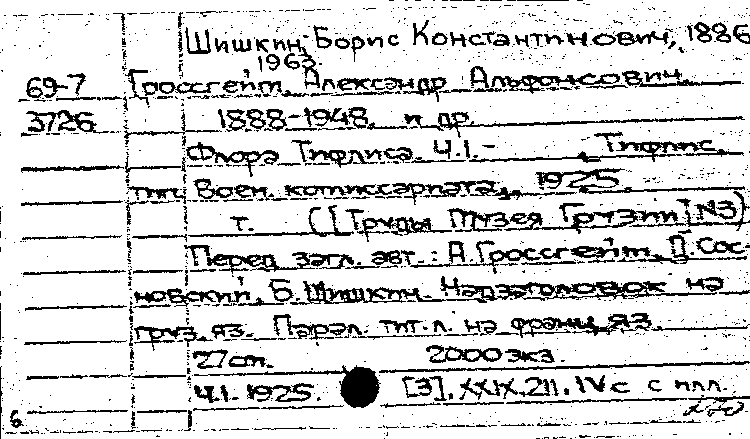 Шишкин, Борис Константинович, 1886
1963.
69-7 Гроссгейм, Александр Альфонсович.
3726 1888-1948. и др.
Флора Тифлиса. Ч.1.- Тифлис,
тип. Воен. комиссариата, 1925.
т. ([Труды Музея Грузии] №3)
Перед загл. авт.: А.Гроссгейм, Д.Сос-
новский, Б.Шишкин. Надзаголовок на
груз. яз. Парал. тит. л. на франц. яз.
27см. 2000экз.
Ч.1. 1925. [3], XXIX, 211, IV с. с илл.
6